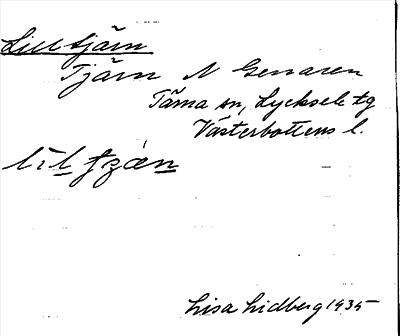 Lilltjärn
Tjärn N Genaren
Tärna sn, Lycksele tg
Västerbottens l.
lìl fzæ̀n
Lisa Lidberg 1935